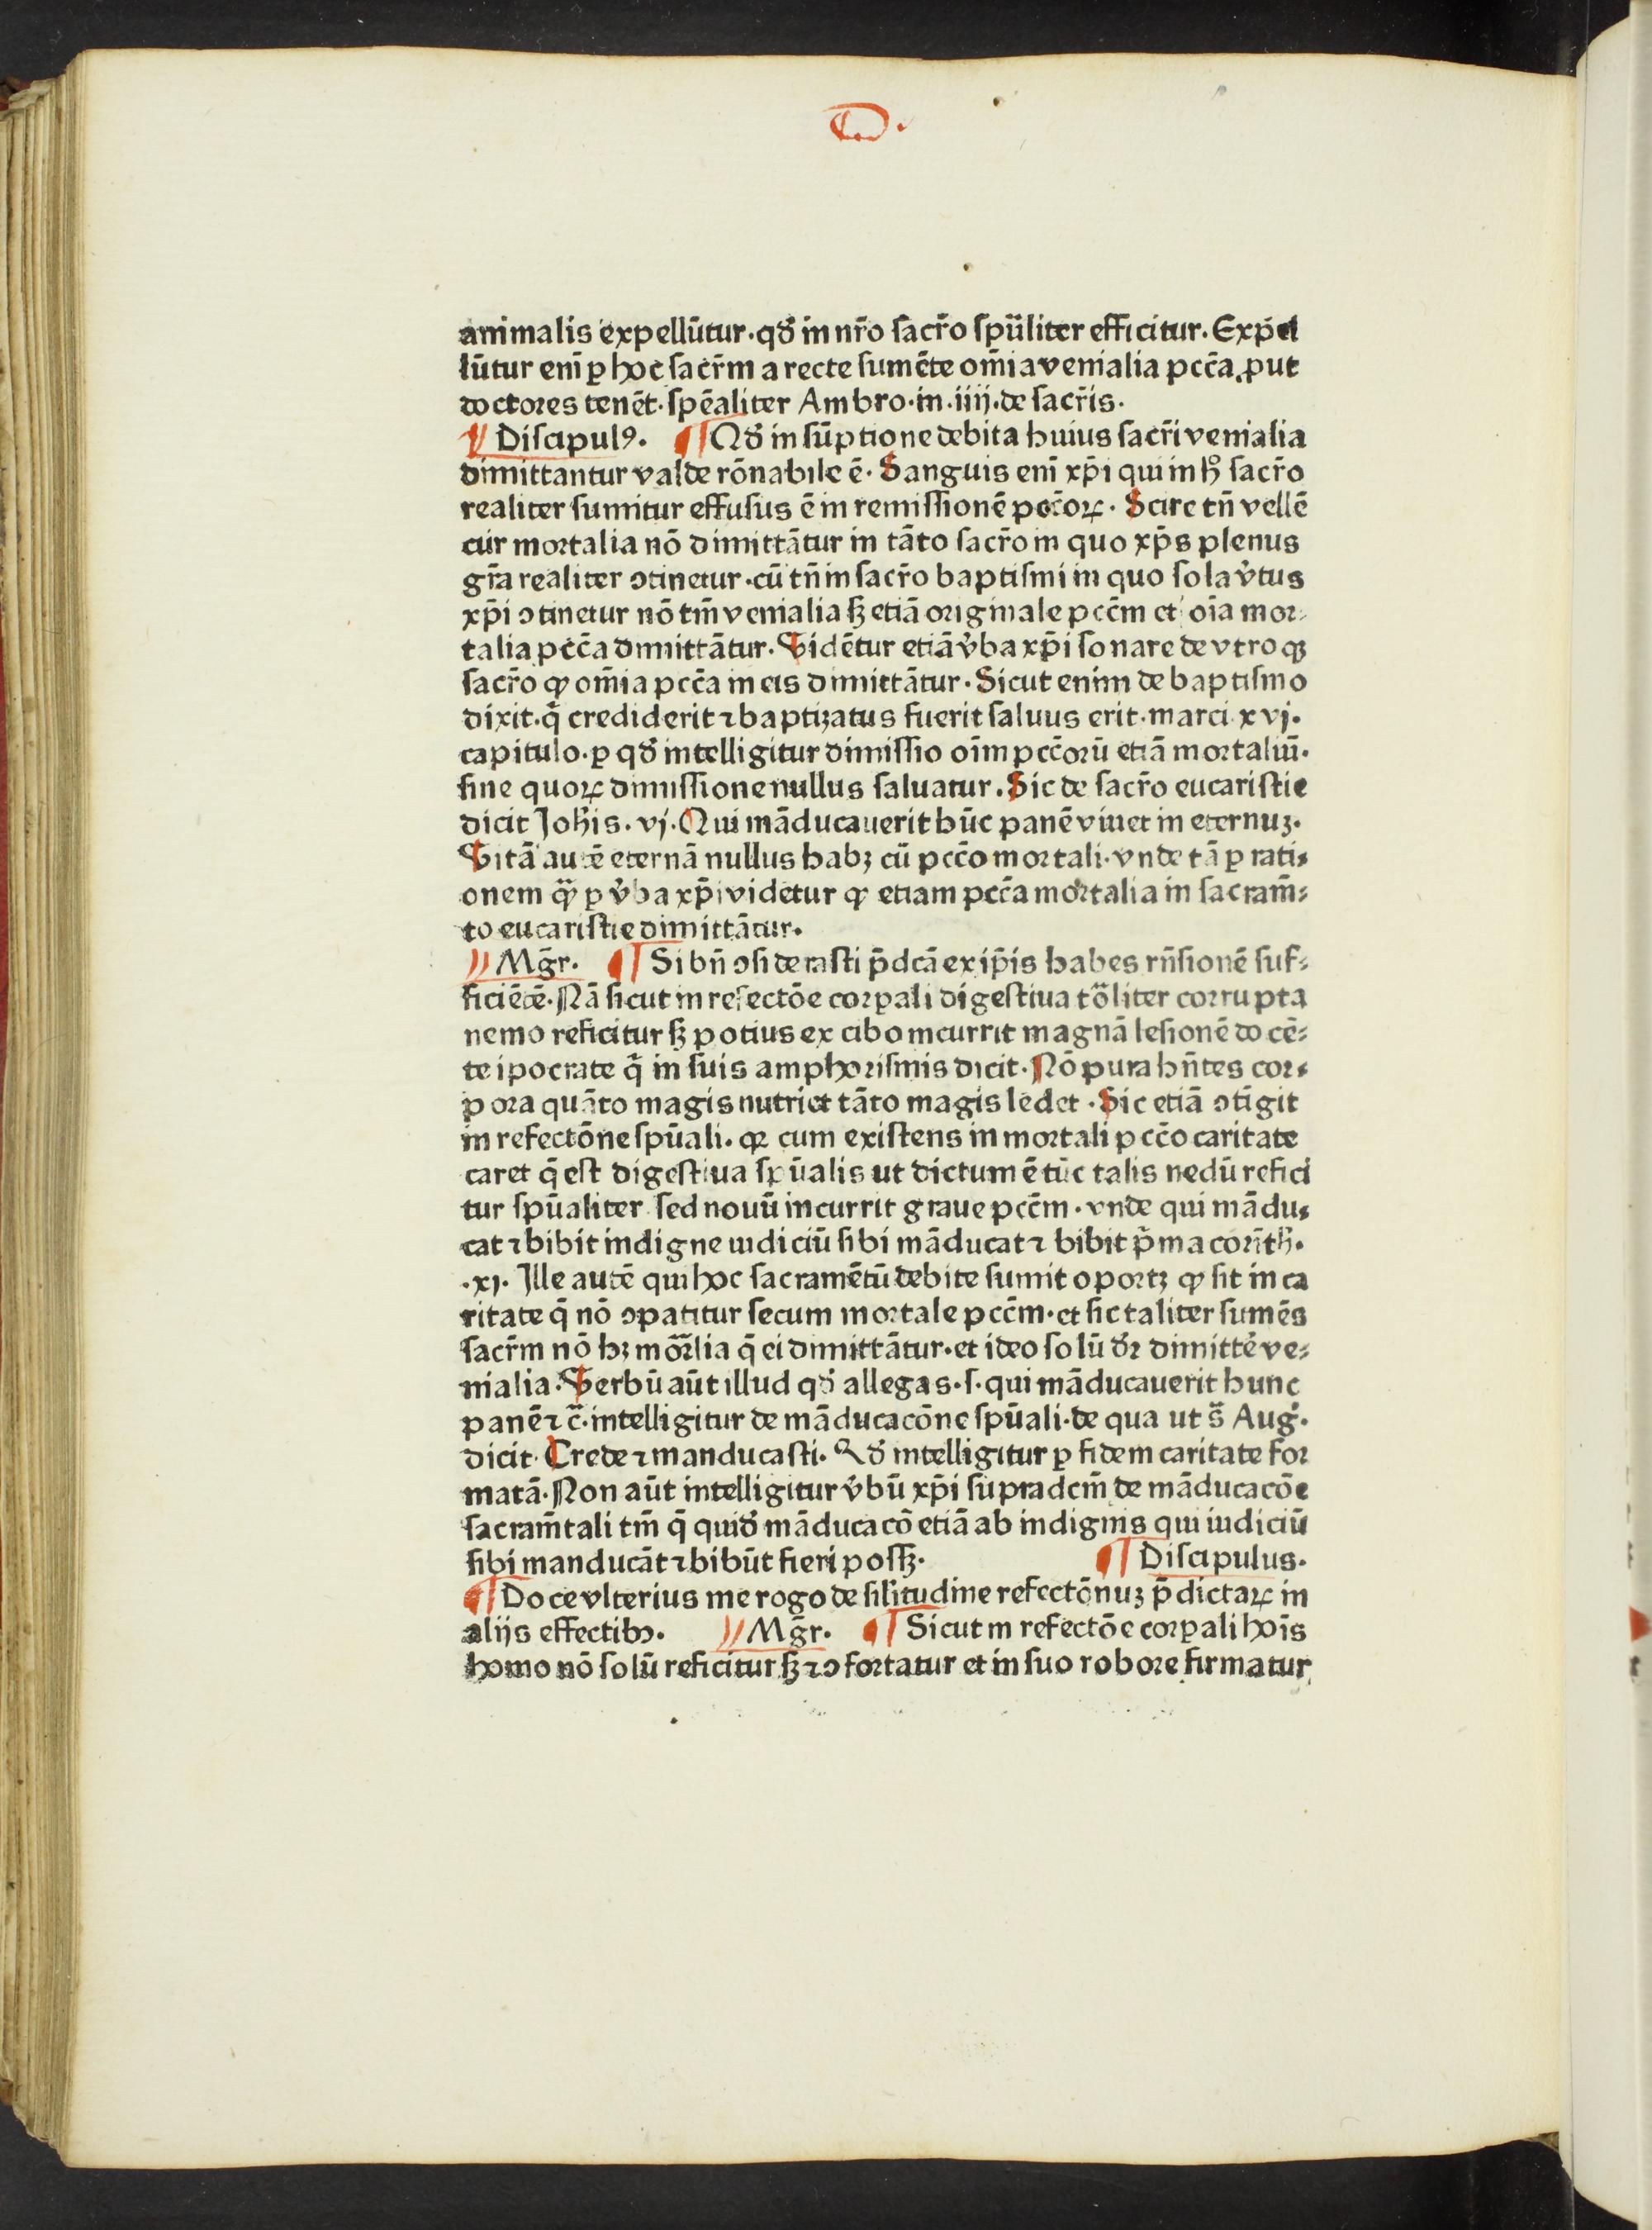 D.
animalis expellūtur·qđ in nr̄o sacr̄o spūliter efficitur·Expel
lūtur enī ꝑ hoc sacr̄m a recte sumēte om̄ia venialia pcc̄a ꝓut
doctores tenēt·spēaliter Ambro·in·iiij·de sacr̄is·
¶ Discipulꝰ· ¶ Qđ in sūptione debita huius sacr̄i venialia
dimittantur valde rōnabile ē·Sanguis enī xp̄i qui in hº sacr̄o
realiter sumitur effusus ē in remissionē pcc̄oꝝ·Scire tn̄ vellē
cur mortalia nō dimittātur in tāto sacr̄o in quo xp̄s plenus
gr̄a realiter ↄtinetur·cū tn̄ in sacr̄o baptismi in quo sola v̓tus
xp̄i ↄtinetur nō tm̄ venialia sꝫ etiā originale pcc̄m et oīa mor⸗
talia pcc̄a dimittātur·Vidētur etiā v̓ba xp̄i sonare de vtroqꝫ
sacr̄o ꝙ om̄ia pcc̄a in eis dimittātur·Sicut enim de baptismo
dixit·q̄ crediderit ⁊ baptizatus fuerit saluus erit·marci xvj·
capitulo·ꝑ qđ intelligitur dimissio oīm pcc̄orū etiā mortaliū·
sine quoꝝ dimissione nullus saluatur·Sic de sacr̄o eucaristie
dicit Joh̄is·vj·Qui māducauerit hūc panē viuet in eternuꝫ·
Vitā autē eternā nullus habꝫ cū pcc̄o mortali·vnde tā ꝑ rati⸗
onem qᷓꝫ ꝑ v̓ba xp̄i videtur ꝙ etiam pcc̄a mortalia in sacram̄⸗
to eucaristie dimittātur·
¶ Mgr̄· ¶ Si bn̄ ↄsiderasti p̄dcā ex ip̄is habes rn̄sionē suf⸗
ficiētē·Nā sicut in refectōe corꝑali digestiua tōliter corrupta
nemo reficitur sꝫ potius ex cibo incurrit magnā lesionē docē⸗
te ipocrate q̄ in suis amphorismis dicit·Nō pura hn̄tes cor⸗
pora quāto magis nutriet tāto magis ledet·Sic etiā ↄtīgit
in refectōne spūali·qꝛ cum existens in mortali pcc̄o caritate
caret q̄ est digestiua spūalis ut dictum ē tūc talis nedū refici
tur spūaliter sed nouū incurrit graue pcc̄m·vnde qui mādu⸗
cat ⁊ bibit indigne iudiciū sibi māducat ⁊ bibit p̄ma corīth̄·
·xj·Ille autē qui hoc sacramētū debite sumit oportꝫ ꝙ sit in ca
ritate q̄ nō ↄpatitur secum mortale pcc̄m·et sic taliter sumēs
sacr̄m nō hꝫ mōrlia q̄ ei dimittātur·et ideo solū đꝛ dimitte̓ ve⸗
nialia·Verbū aūt illud qđ allegas·s·qui māducauerit hunc
panē ⁊ c̄·intelligitur de māducacōne spūali·de qua ut s̄ Aug̓·
dicit·Crede ⁊ manducasti·Qđ intelligitur ꝑ fidem caritate for
matā·Non aūt intelligitur v̓bū xp̄i supradcm̄ de māducacōe
sacram̄tali tm̄ q̄ quiđ māducacō etiā ab indignis qui iudiciū
sibi manducāt ⁊ bibūt fieri possꝫ· ¶ Discipulus·
¶ Doce vlterius me rogo de silitudine refectōnuꝫ p̄dictaꝝ in
alijs effectibꝫ· ¶ Mgr̄· ¶ Sicut in refectōe corꝑali hoīs
homo nō solū reficitur sꝫ ⁊ ↄfortatur et in suo robore firmatur